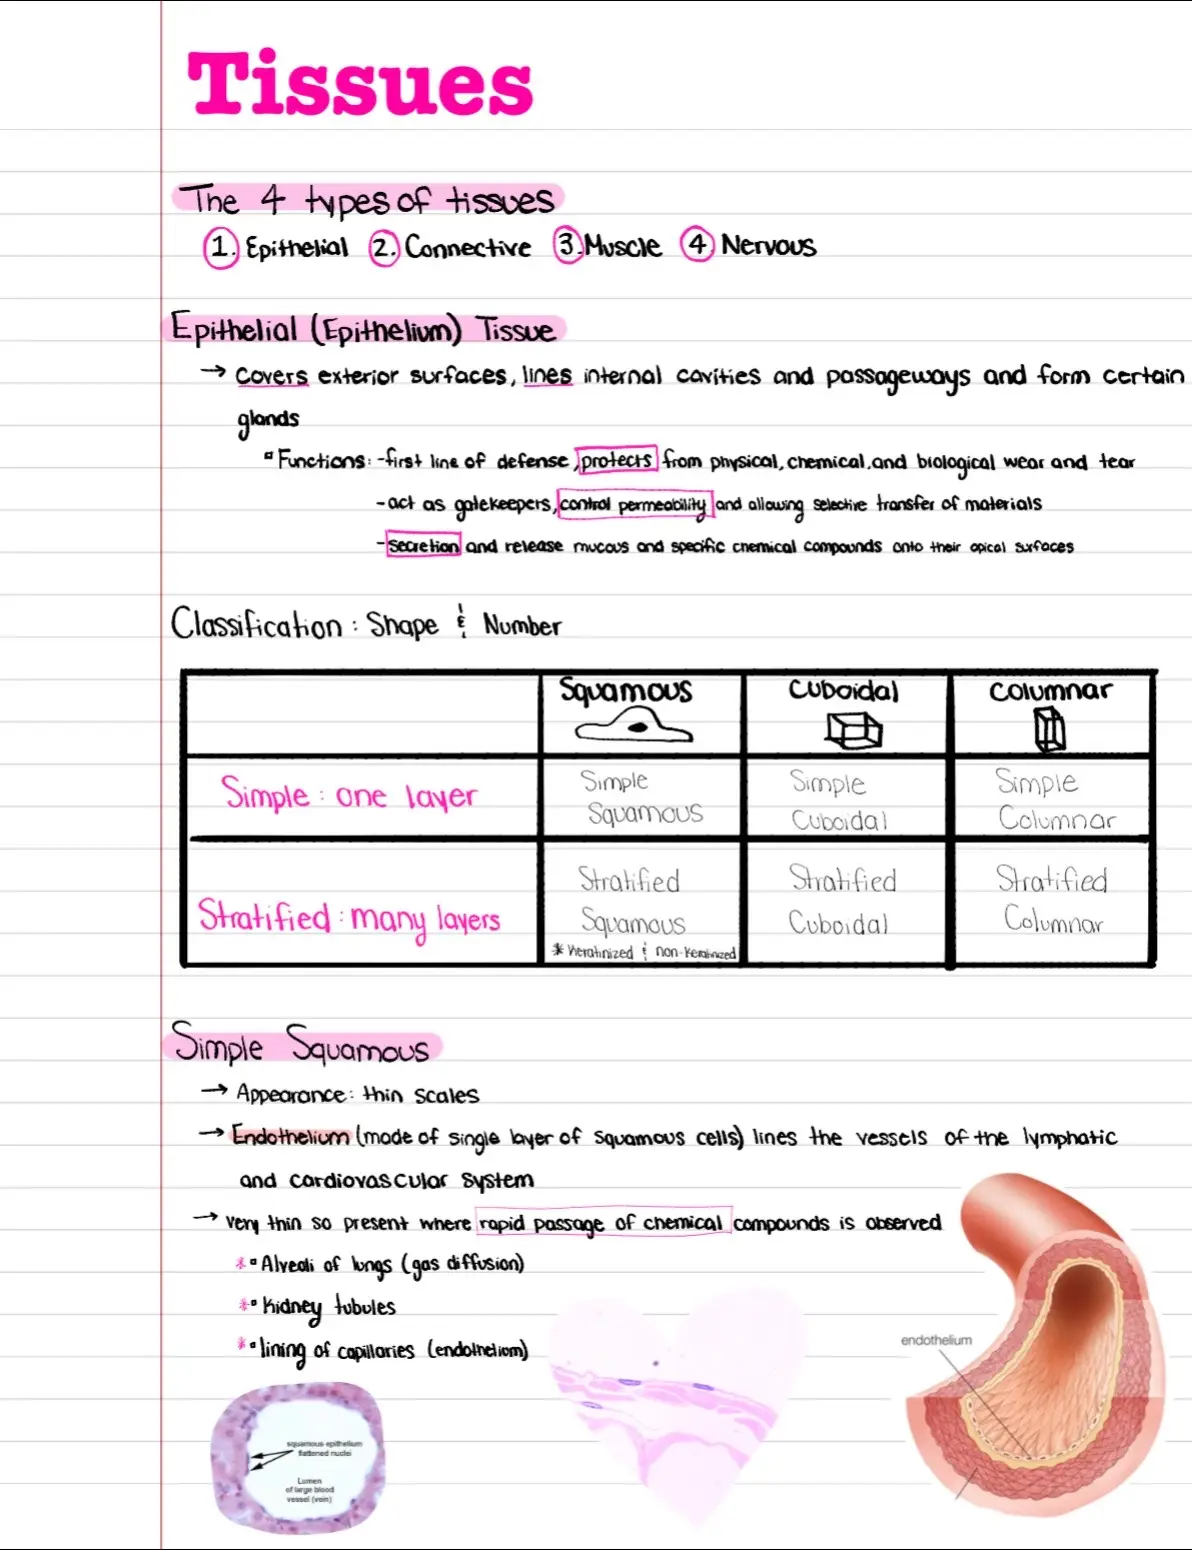 Tissues
The 4 types of tissues
1. Epithelial 2. Connective 3. Muscle 4 Nervous
Epithelial (Epithelium) Tissue
→ Covers exterior surfaces, lines internal cavities and passageways and form certain
glands
▫ Functions: -first line of defense, protects from physical, chemical, and biological wear and tear
-act as gatekeepers, control permeability and allowing selective transfer of materials
-secretion and release mucous and specific chemical compounds onto their apical surfaces
Classification: Shape & Number
Squamous Cuboidal Columnar
Simple: one layer
Simple Squamous
Simple Cuboidal
Simple Columnar
Stratified: many layers
Stratified Squamous
* Keratinized & non-Keratinized
Stratified Cuboidal
Stratified Columnar
Simple Squamous
→ Appearance: thin scales
→ Endothelium (made of single layer of squamous cells) lines the vessels of the lymphatic
and cardiovascular system
→ very thin so present where rapid passage of chemical compounds is observed
*▫ Alveoli of lungs (gas diffusion)
*▫ Kidney tubules
*▫ lining of capillaries (endothelium)
endothelium
squamous epithelium
flattened nuclei
Lumen
of large blood
vessel (vein)